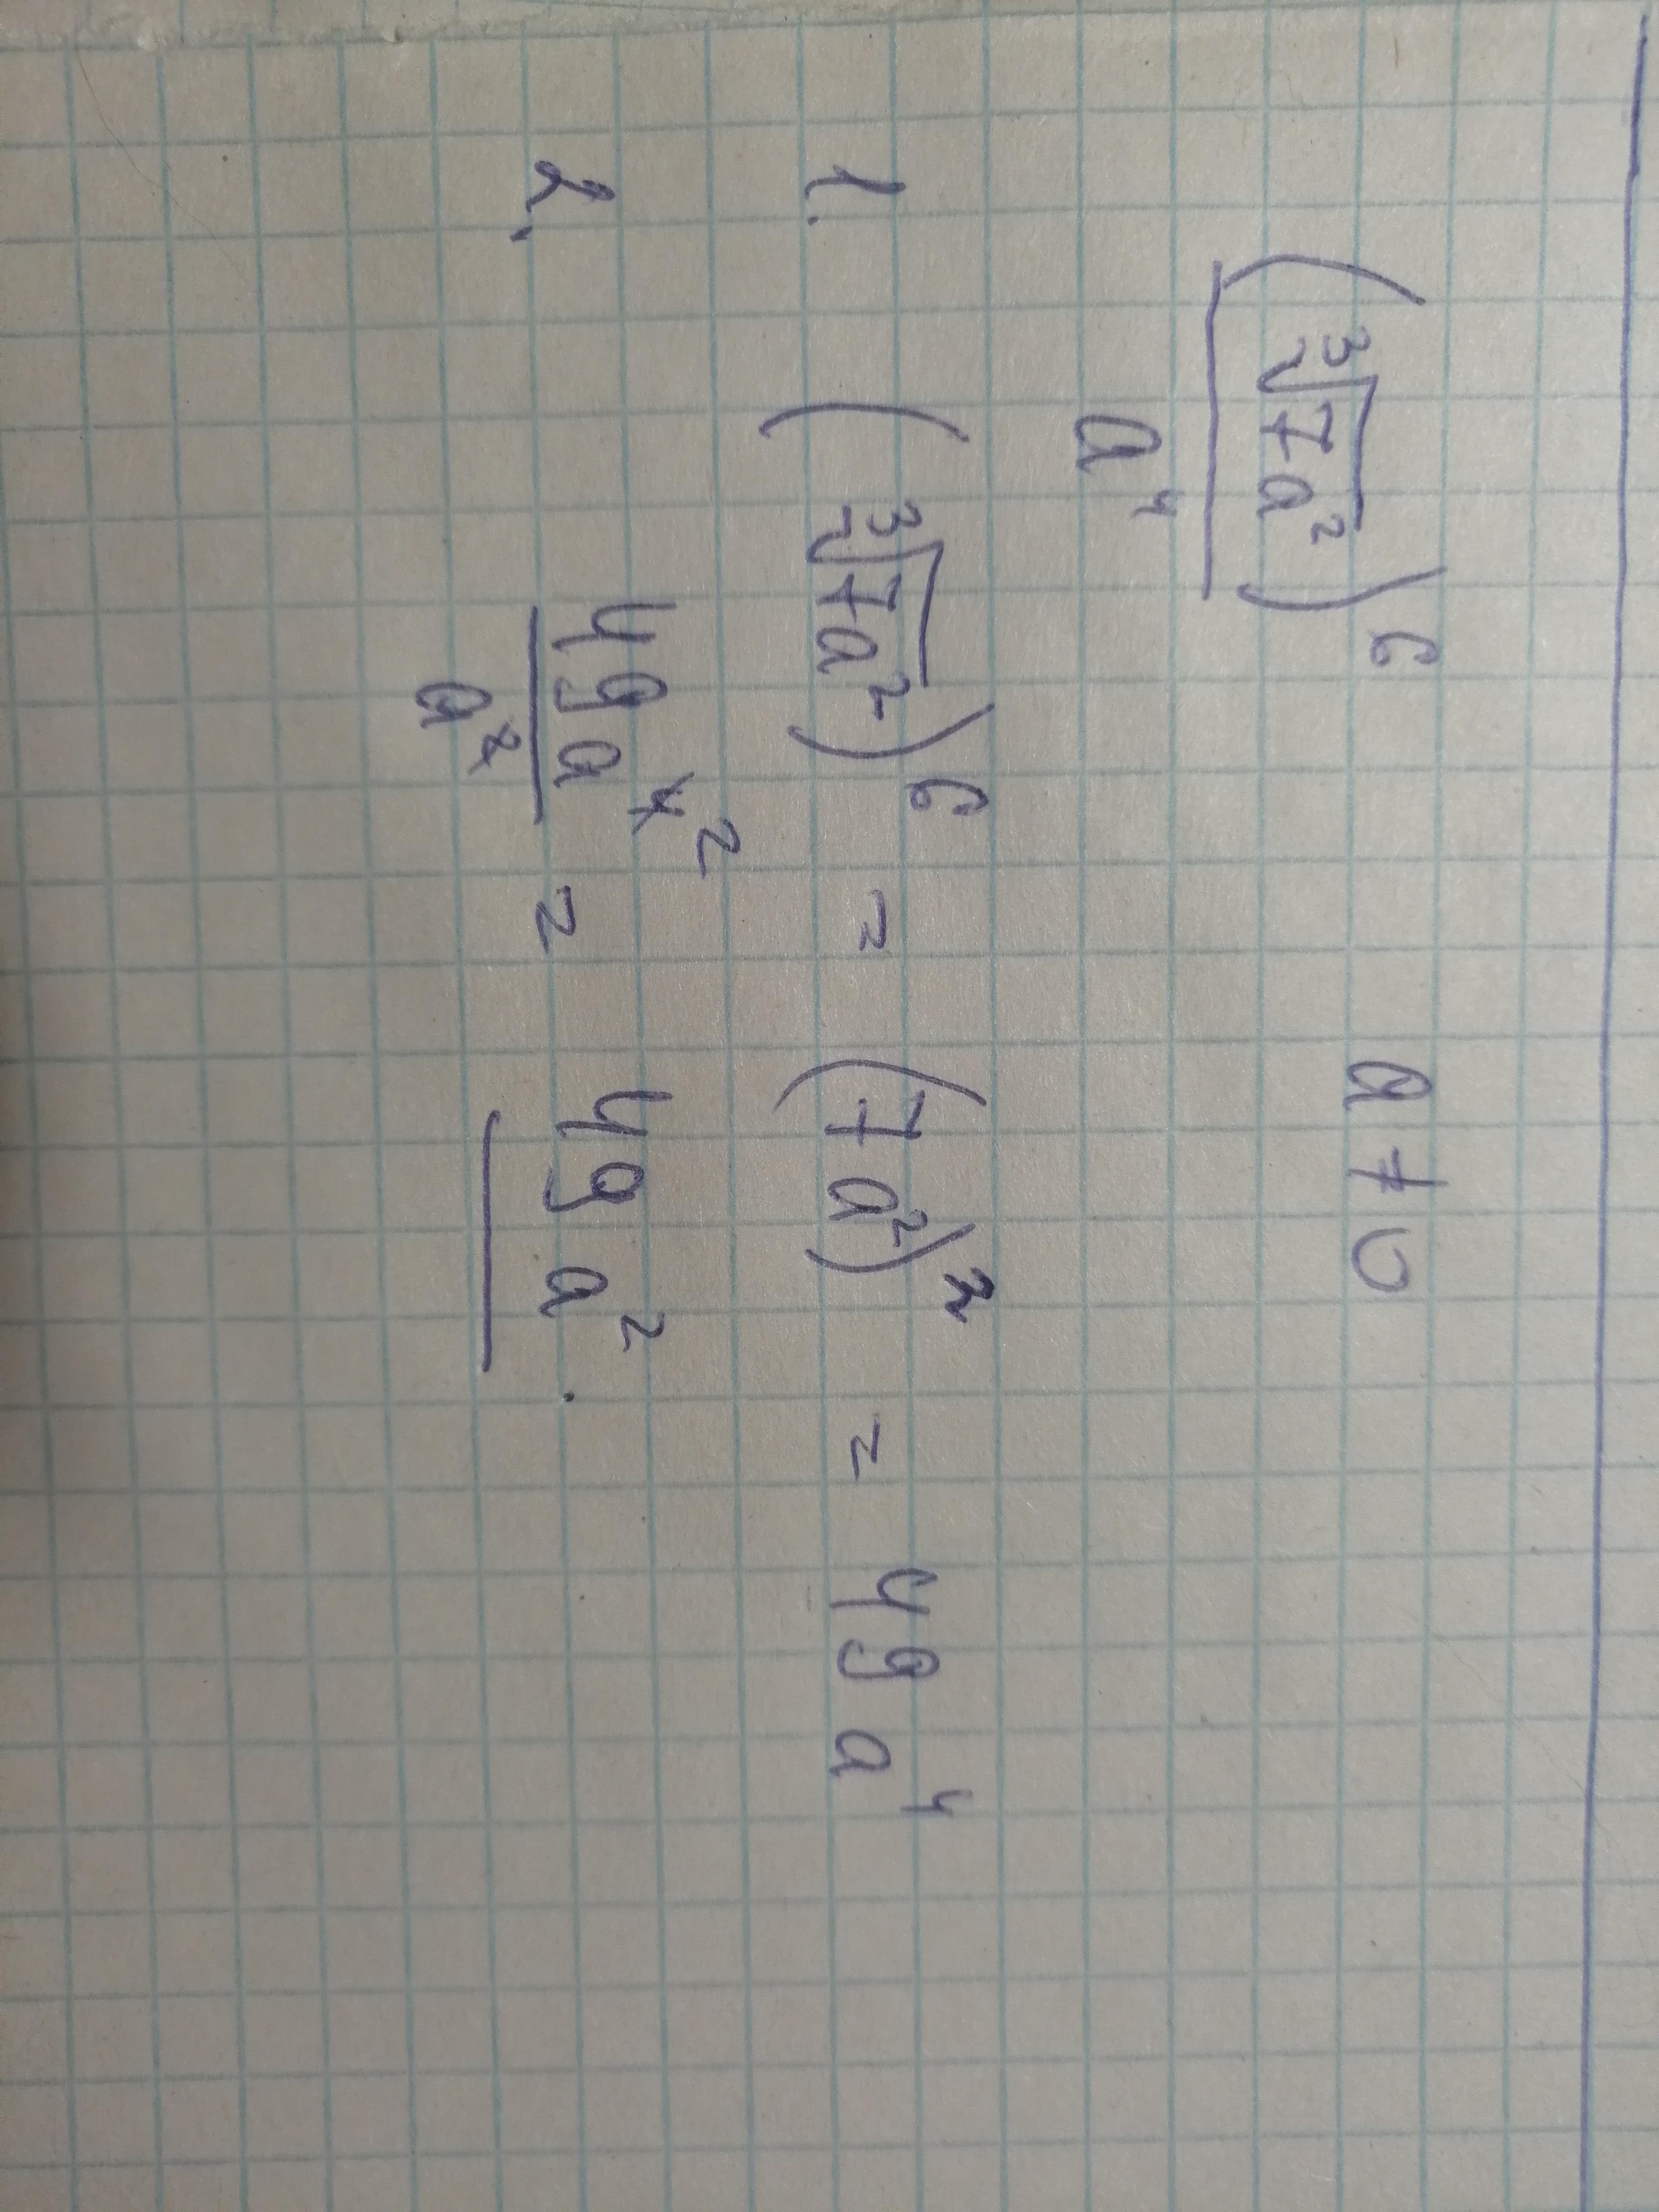 (∛7a²)⁶ / a⁴    a ≠ 0
1. (∛7a²)⁶ = (7a²)² = 49a⁴
2. 49a⁴ ² / a² = 49a².